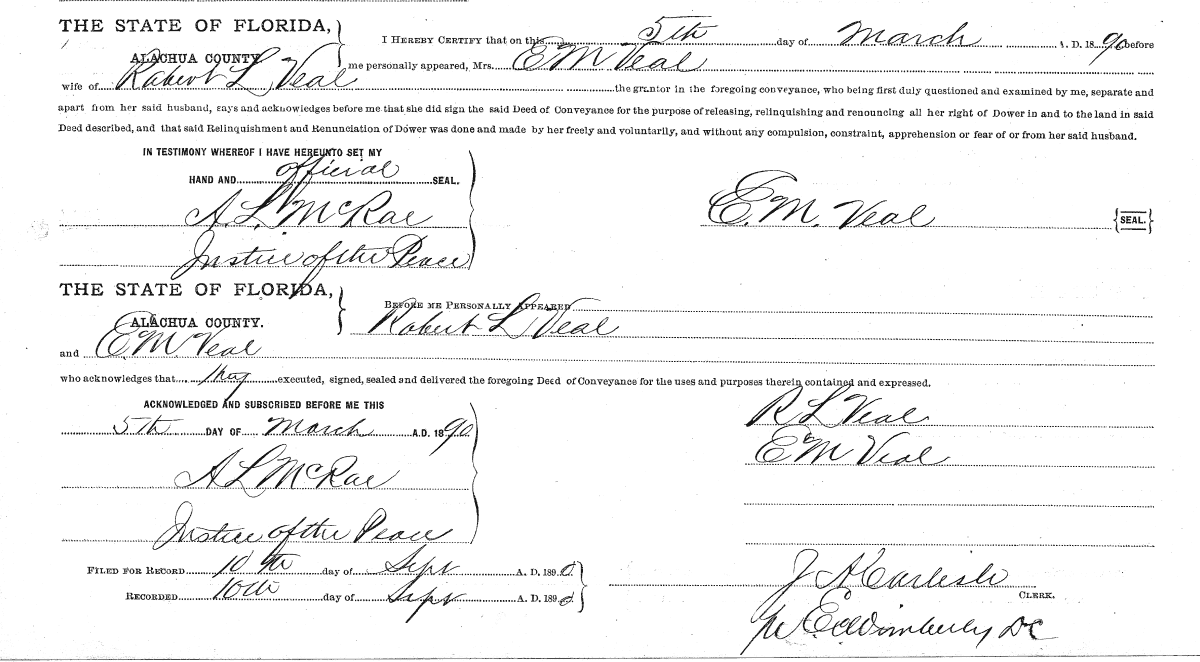 THE STATE OF FLORIDA,
ALACHUA COUNTY
I HEREBY CERTIFY that on this 5th day of March A. D. 1890 before
me personally appeared, Mrs. E M Veal
wife of Robert L Veal the grantor in the foregoing conveyance, who being first duly questioned and examined by me, separate and
apart from her said husband, says and acknowledges before me that she did sign the said Deed of Conveyance for the purpose of releasing, relinquishing and renouncing all her right of Dower in and to the land in said
Deed described, and that said Relinquishment and Renunciation of Dower was done and made by her freely and voluntarily, and without any compulsion, constraint, apprehension or fear of or from her said husband.
IN TESTIMONY WHEREOF I HAVE HEREUNTO SET MY
HAND AND official SEAL.
A. L. McRae
E. M. Veal {SEAL.}
Justice of the Peace
THE STATE OF FLORIDA,
ALACHUA COUNTY.
BEFORE ME PERSONALLY APPEARED
Robert L Veal
and E M Veal
who acknowledges that they executed, signed, sealed and delivered the foregoing Deed of Conveyance for the uses and purposes therein contained and expressed.
ACKNOWLEDGED AND SUBSCRIBED BEFORE ME THIS
5th DAY OF March A.D. 1890
R L Veal
E M Veal
A L McRae
Justice of the Peace
FILED FOR RECORD 10th day of Sept A. D. 1890
RECORDED 10th day of Sept A. D. 1890
J A Carlisle
CLERK.
Wimberly DC